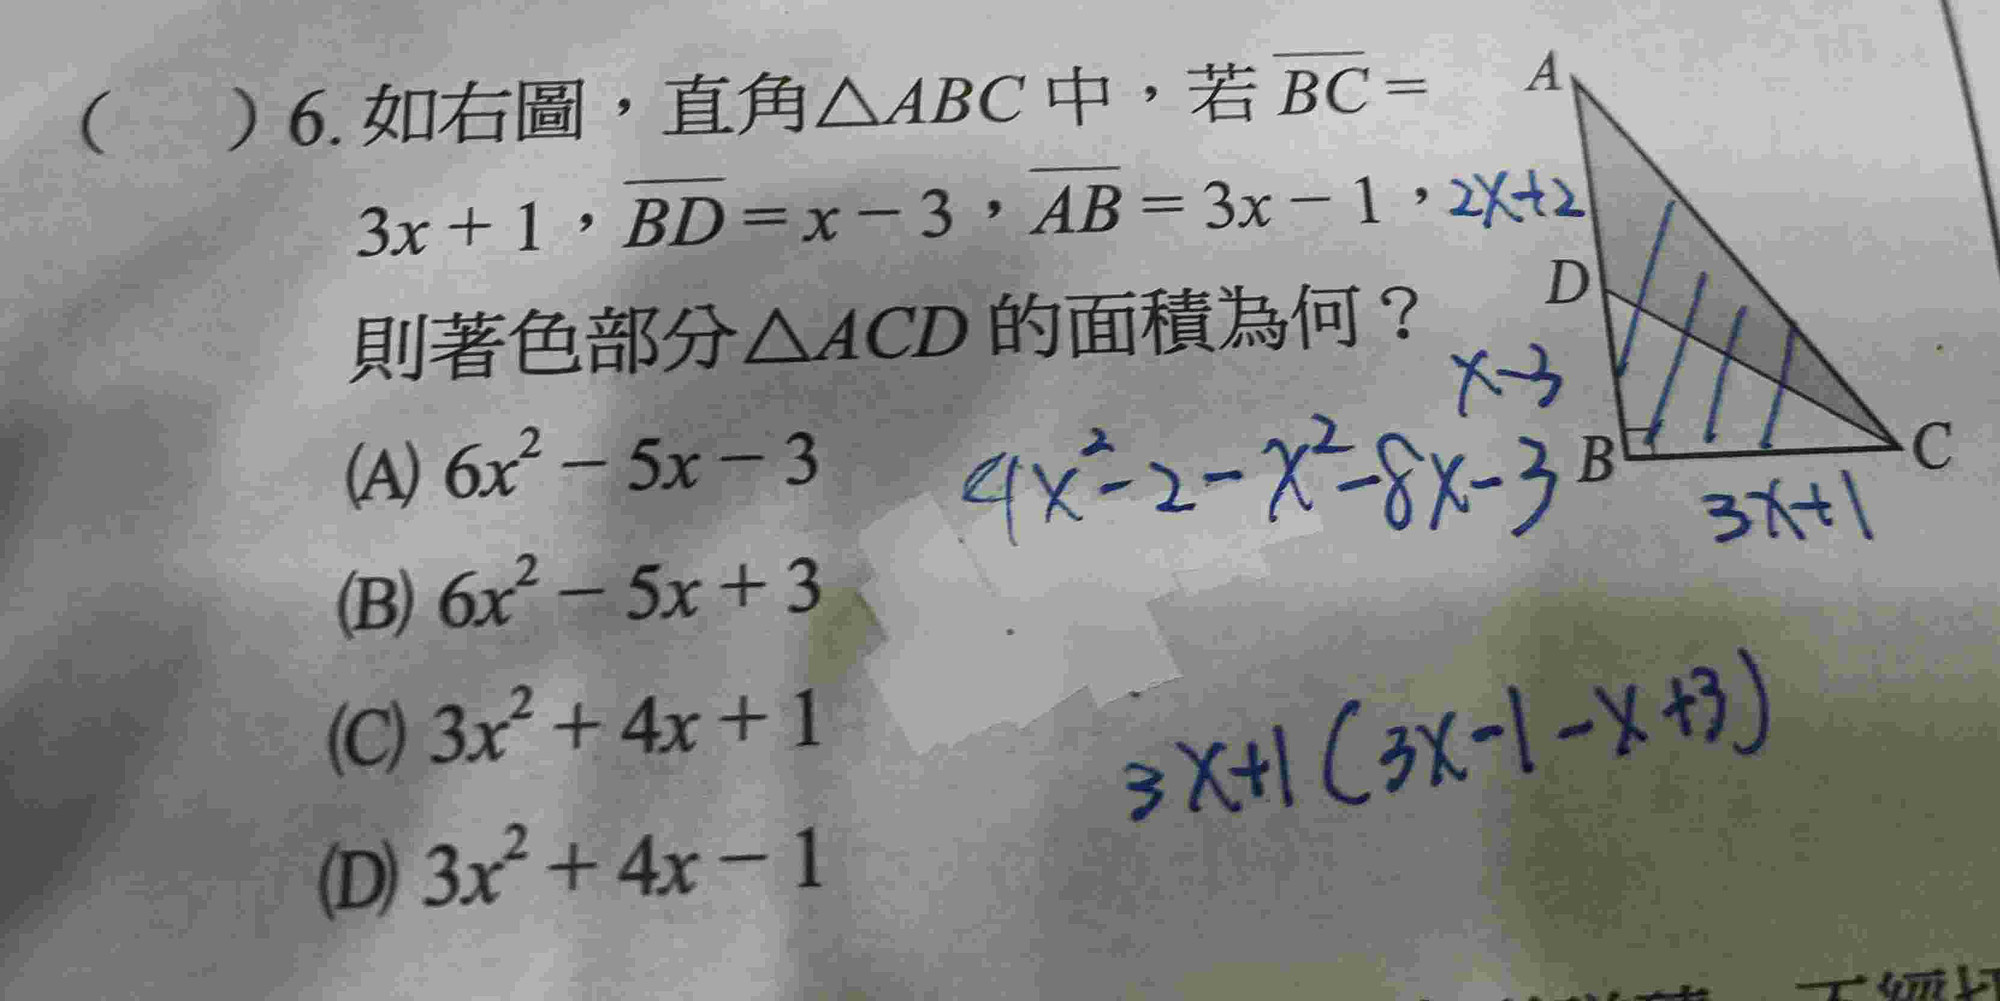 ( ) 6. 如右圖，直角△ABC 中，若 BC =
3x + 1，BD = x − 3，AB = 3x − 1，
則著色部分△ACD 的面積為何？
(A) 6x² − 5x − 3
(B) 6x² − 5x + 3
(C) 3x² + 4x + 1
(D) 3x² + 4x − 1
A
2x+2
D
x-3
B
C
3x+1
4x²-2-x²-8x-3
3x+1(3x-1-x+3)